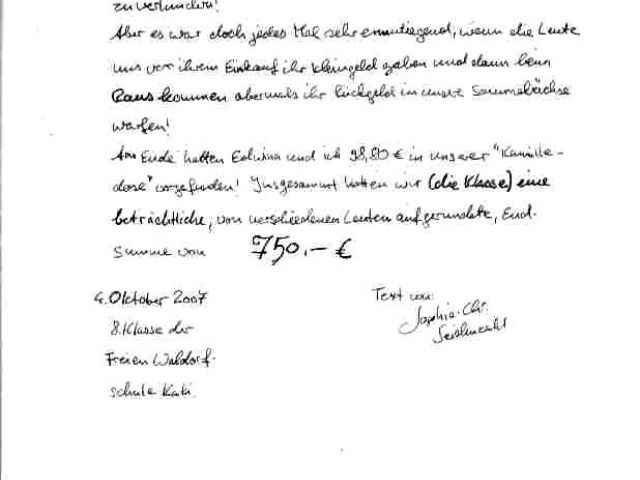 zu verhindern!
Aber es war doch jedes Mal sehr ermutigend, wenn die Leute
uns vor ihrem Einkauf ihr Kleingeld gaben und dann beim
Rauskommen abermals ihr Rückgeld in unsere Sammelbüchse
warfen!
Am Ende hatten Edwina und ich 98,80 € in unserer "Kamille-
dose" vorgefunden! Insgesammt hatten wir (die Klasse) eine
beträchtliche, von verschiedenen Leuten aufgerundete, End-
summe von 750.- €
4. Oktober 2007
Text von:
8. Klasse der
Sophie-Chr.
Freien Waldorf-
schule